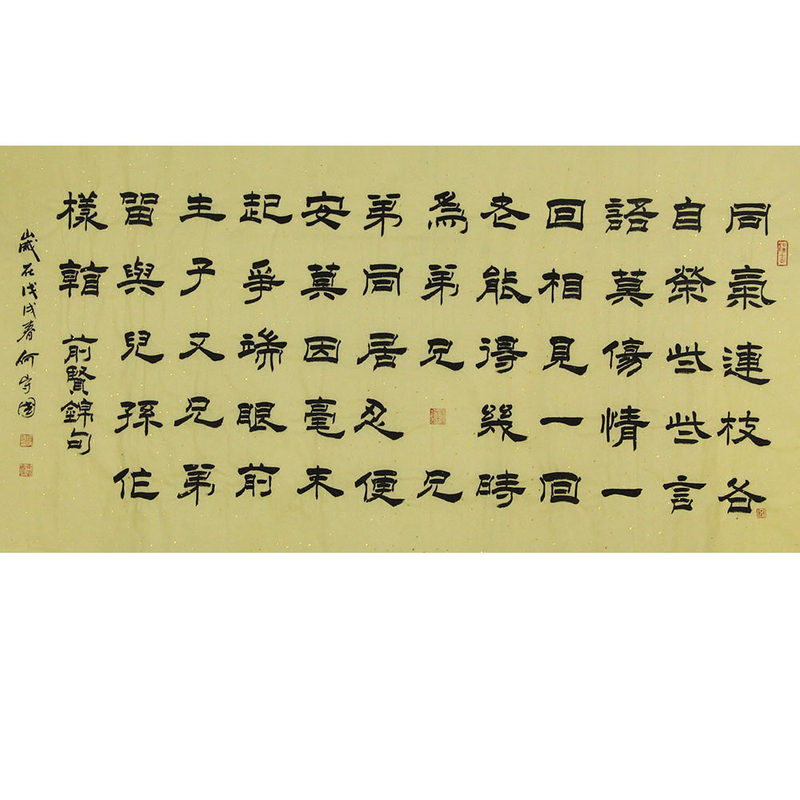 同氣連枝各
自榮些些言
語莫傷情一
回相見一回
老能得幾時
為弟兄兄
弟同居忍便
安莫因毫末
起爭端眼前
生子又兄弟
留與兒孫作
樣看前賢錦句
歲在戊戌春何國